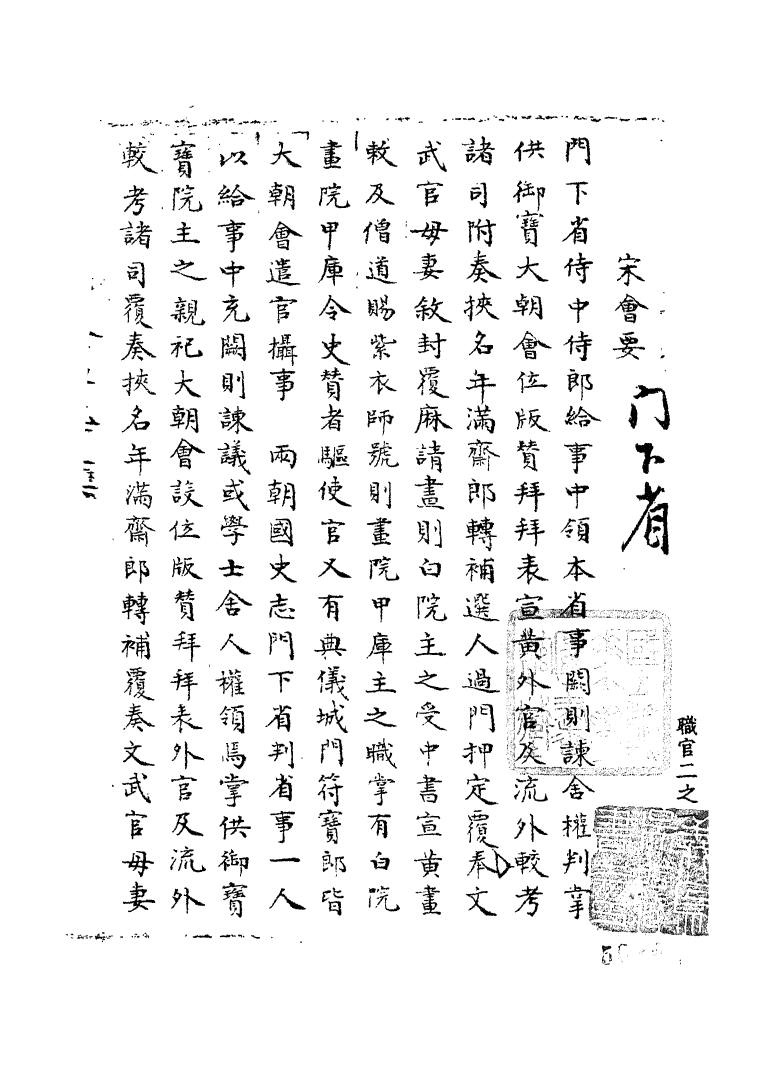 宋會要
門下省
門下省侍中侍郎給事中領本省事闕則諫舍權判掌
供御寶大朝會位版贊拜拜表宣黃外官及流外較考
諸司附奏挾名年滿齋郎轉補選人過門押定覆奉文
武官母妻敘封覆麻請畫則白院主之受中書宣黃畫
敕及僧道賜紫衣師號則畫院甲庫主之職掌有白院
畫院甲庫令史贊者驅使官又有典儀城門符寶郎皆
大朝會遣官攝事　兩朝國史志門下省判省事一人
以給事中充闕則諫議或學士舍人權領焉掌供御寶
寶院主之親祀大朝會設位版贊拜拜表外官及流外
較考諸司覆奏挾名年滿齋郎轉補覆奏文武官母妻
職官二之